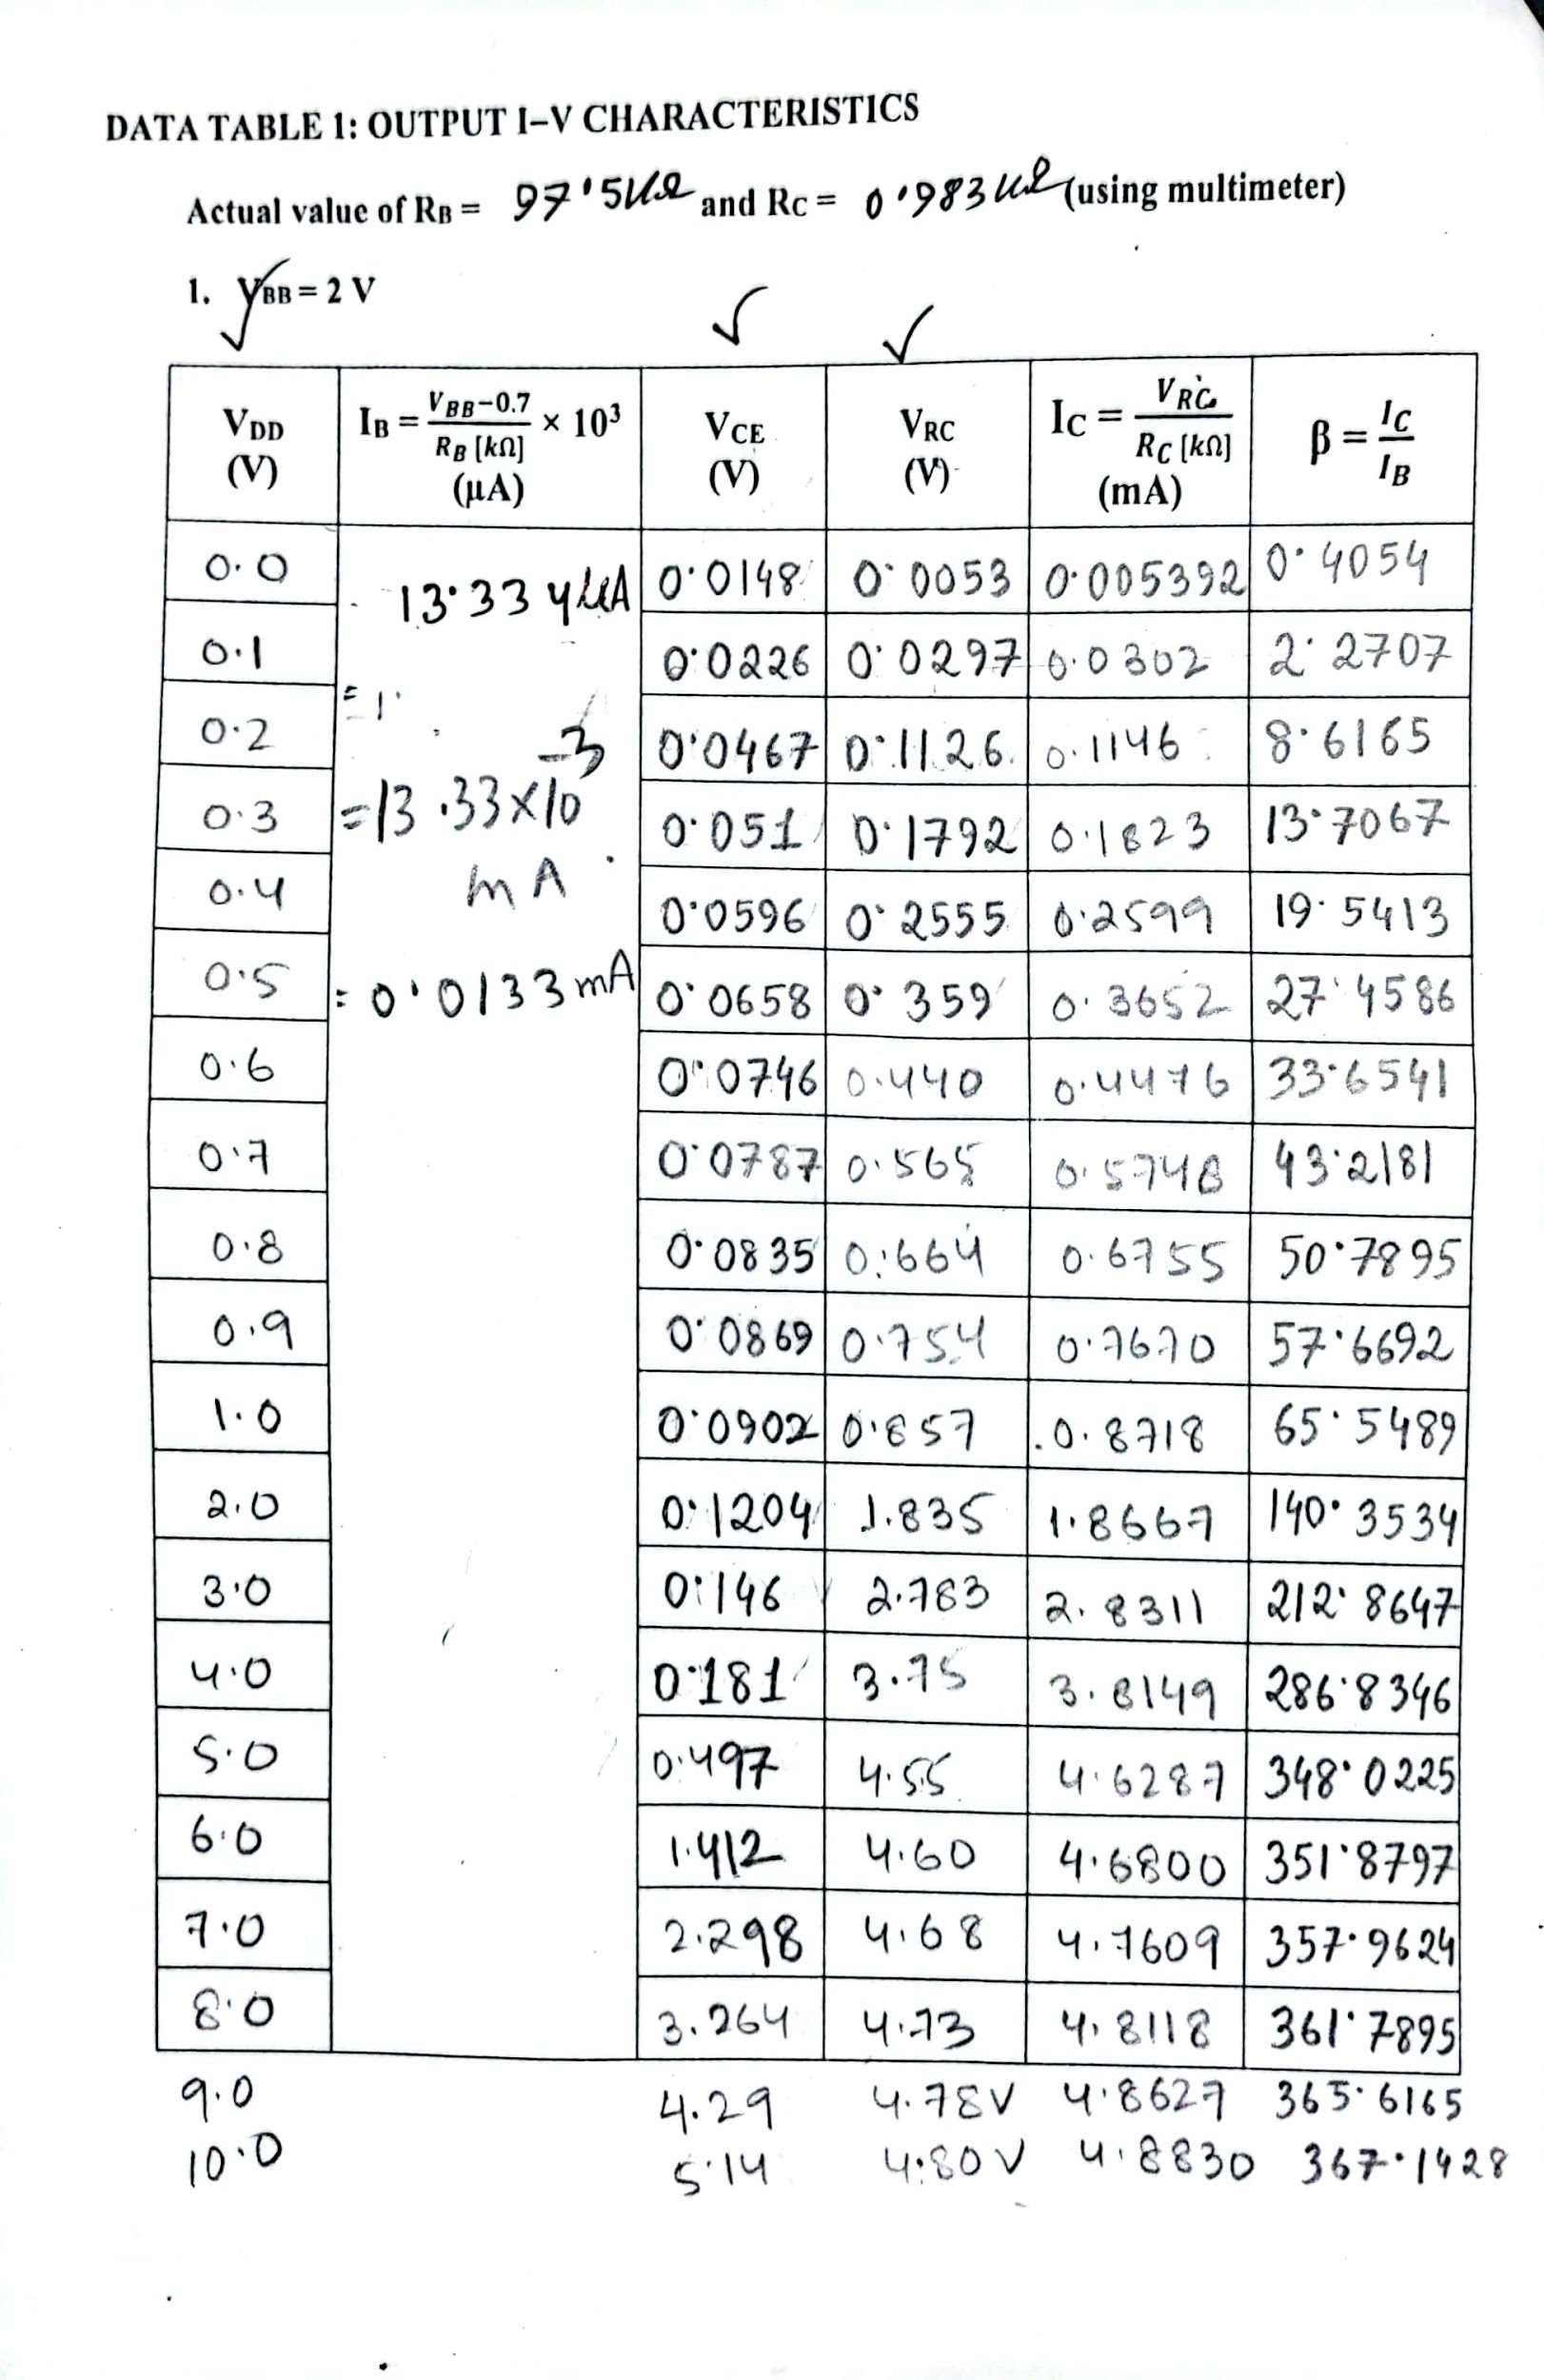 DATA TABLE 1: OUTPUT I–V CHARACTERISTICS
Actual value of RB = 97.5KΩ and RC = 0.983 kΩ (using multimeter)
1. VBB = 2 V
VDD (V) | IB = (VBB−0.7)/(RB [kΩ]) × 10³ (μA) | VCE (V) | VRC (V) | IC = VRC/(RC [kΩ]) (mA) | β = IC/IB
0.0 | 13.33 μA | 0.0148 | 0.0053 | 0.005392 | 0.4054
0.1 | 0.0226 | 0.0297 | 0.0302 | 2.2707
0.2 | 0.0467 | 0.1126 | 0.1146 | 8.6165
0.3 | =13.33×10⁻³ | 0.051 | 0.1792 | 0.1823 | 13.7067
0.4 | mA | 0.0596 | 0.2555 | 0.2599 | 19.5413
0.5 | = 0.0133 mA | 0.0658 | 0.359 | 0.3652 | 27.4586
0.6 | 0.0746 | 0.440 | 0.4476 | 33.6541
0.7 | 0.0787 | 0.565 | 0.5748 | 43.2181
0.8 | 0.0835 | 0.664 | 0.6755 | 50.7895
0.9 | 0.0869 | 0.754 | 0.7670 | 57.6692
1.0 | 0.0902 | 0.857 | 0.8718 | 65.5489
2.0 | 0.1204 | 1.835 | 1.8667 | 140.3534
3.0 | 0.146 | 2.783 | 2.8311 | 212.8647
4.0 | 0.181 | 3.75 | 3.8149 | 286.8346
5.0 | 0.497 | 4.55 | 4.6287 | 348.0225
6.0 | 1.412 | 4.60 | 4.6800 | 351.8797
7.0 | 2.298 | 4.68 | 4.7609 | 357.9624
8.0 | 3.264 | 4.73 | 4.8118 | 361.7895
9.0 | 4.29 | 4.78V | 4.8627 | 365.6165
10.0 | 5.14 | 4.80V | 4.8830 | 367.1428